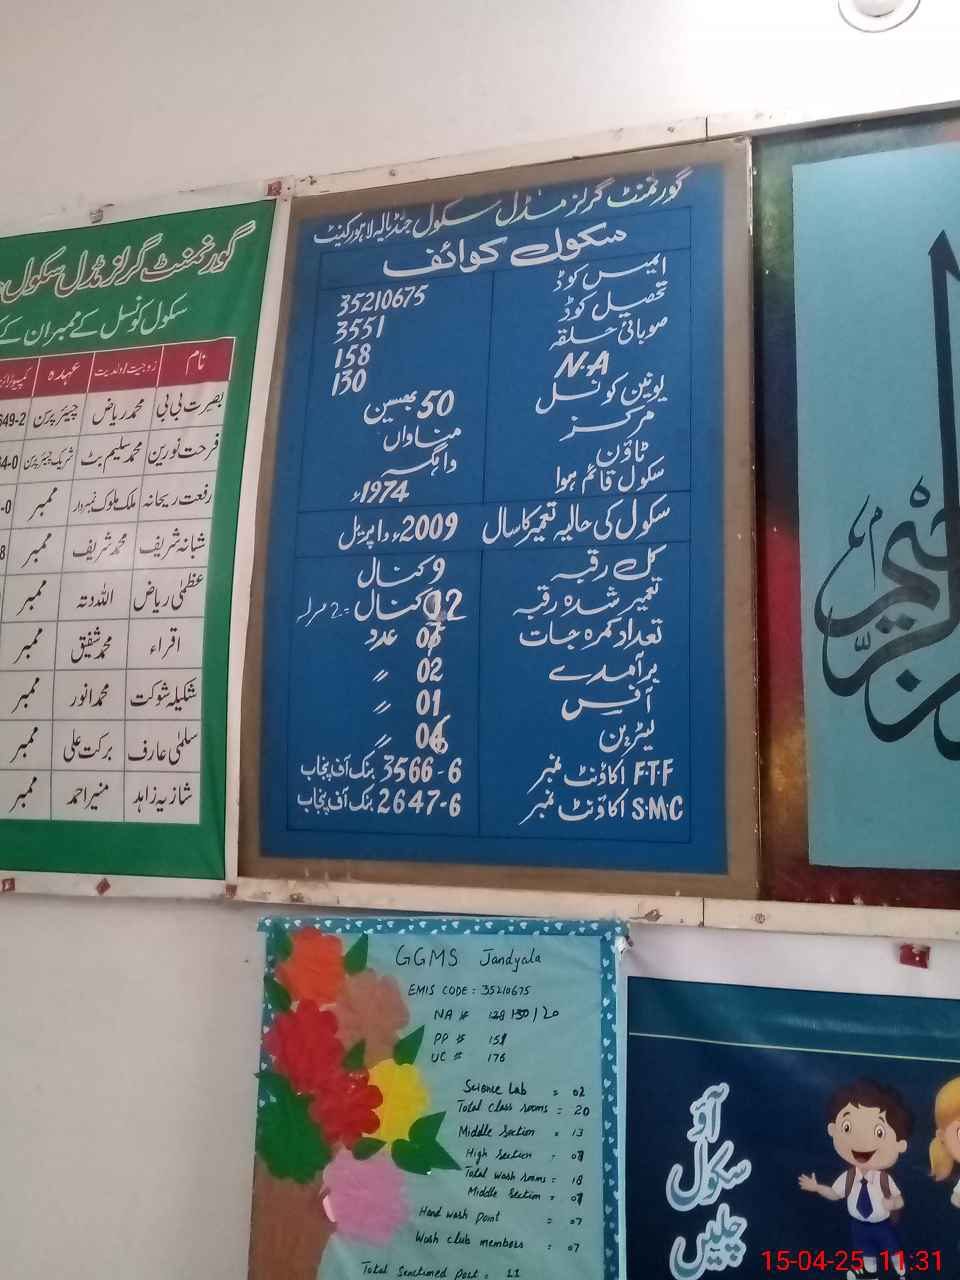 گورنمنٹ گرلز مڈل سکول جنڈیالہ لاہور کینٹ
سکول کوائف
ایمس کوڈ 35210675
تحصیل کوڈ 3551
صوبائی حلقہ 158
N.A 130
یونین کونسل 50 بھسین
مرکز مناواں
ٹاؤن واہگہ
سکول قائم ہوا 1974ء
سکول کی حالیہ تعمیر کا سال 2009ء اپریل
کل رقبہ 9 کنال
تعمیر شدہ رقبہ کنال = 2 مرلہ
تعداد کمرہ جات عدد
برآمدے 02 〃
آفس 01 〃
لیٹرین 〃
F.T.F اکاؤنٹ نمبر 3566-6 بنک آف پنجاب
S.M.C اکاؤنٹ نمبر 2647-6 بنک آف پنجاب
گورنمنٹ گرلز مڈل سکول
سکول کونسل کے ممبران کے
نام زوجیت/ولدیت عہدہ
بصیرت بی بی محمد ریاض چیئرپرسن 649-2
فرحت نورین محمد سلیم بٹ شریک چیئرپرسن 34-0
رفعت ریحانہ ملک ملوک نمبردار ممبر -0
شبانہ شریف محمد شریف ممبر 8
عظمٰی ریاض اللہ دتہ ممبر
اقراء محمد شفیق ممبر
شکیلہ شوکت محمد انور ممبر
سلمٰی عارف برکت علی ممبر
شازیہ زاہد منیر احمد ممبر
GGMS Jandyala
EMIS CODE : 35210675
NA # 130 / 20
PP # 158
UC # 176
Science Lab = 02
Total Class rooms = 20
Middle Section = 13
High Section =
Total wash rooms = 18
Middle Section =
Hand wash point = 07
Wash club members = 07
Total Sanctioned Post = 11
آؤ
سکول
چلیں
15-04-25 11:31